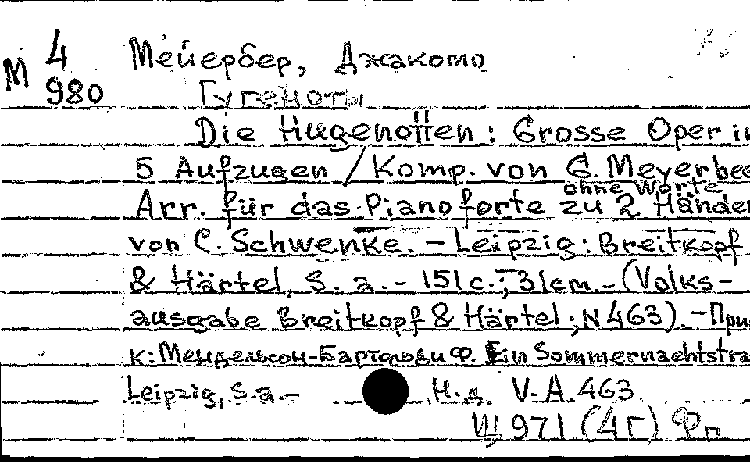 М 4 980
Мейербер, Джакомо
Гугеноты
Die Hugenotten : Grosse Oper in
5 Aufzugen / Komp. von G. Meyerbee
ohne Worte
Arr. für das Pianoforte zu 2 Händen
von C. Schwenke. – Leipzig : Breitkopf
& Härtel, S. a. – 151 с.; 31cm. – (Volks-
ausgabe Breitkopf & Härtel ; N 463). – При
к: Мендельсон-Бартольди Ф. Ein Sommernachtstra
Leipzig, s.a. – Н.д. V. A. 463
Щ 971 (4Г) Фп